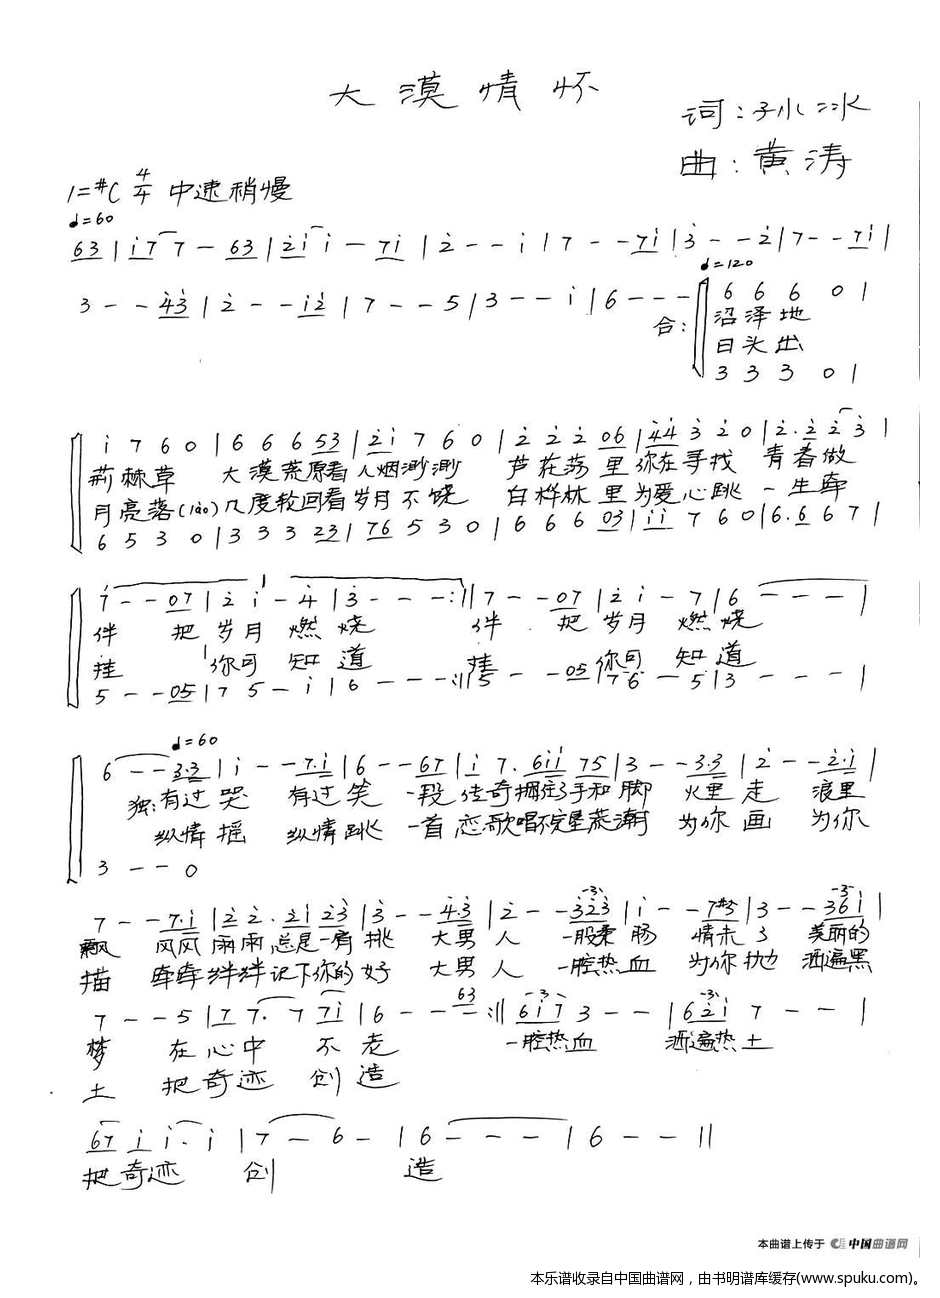 大漠情怀
词:孙小冰
曲:黄涛
1=#C 4/4 中速稍慢
♩=60
63 | i7 7 - 63 | 2i i - 7i | 2 - - i | 7 - - 7i | 3 - - 2 | 7 - - 7i |
♩=120
3 - - 43 | 2 - - i2 | 7 - - 5 | 3 - - i | 6 - - - 6 6 6 0 |
合: 沼泽地
日头出
3 3 3 0 |
i 7 6 0 | 6 6 6 53 | 2i 7 6 0 | 2 2 2 06 | 44 3 2 0 | 2. 2 2 3 |
荆棘草 大漠荒原看人烟渺渺 芦花荡里你在寻找 青春做
月亮落(lào)几度轮回看岁月不饶 白桦林里为爱心跳 一生牵
6 5 3 0 | 3 3 3 23 | 76 5 3 0 | 6 6 6 03 | ii 7 6 0 | 6. 6 6 7 |
7 - - 07 | 2 i - 4 | 3 - - - :|| 7 - - 07 | 2 i - 7 | 6 - - - |
伴 把岁月燃烧 伴 把岁月燃烧
挂 你可知道 挂 你可知道
5 - - 05 | 7 5 - i | 6 - - - :|| 5 - - 05 | 7 6 - 5 | 3 - - - |
♩=60
6 - - 3.3 | i - - 7.i | 6 - - 67 | i 7. 6ii 75 | 3 - - 3.3 | 2 - - 2.i |
独有过哭 有过笑 一段传奇捆绑了手和脚 火里走 浪里
纵情摇 纵情跳 一首恋歌唱不完星荒潮 为你画 为你
3 - - 0
7 - - 7.i | 2 2. 2i 23 | 3 - - 4.3 | 2 - - 323 | i - - 7#5 | 3 - - 36i |
飘 风风雨雨总是一肩挑 大男人 一股柔肠 情未了 美丽的
描 牵牵绊绊记下你的好 大男人 一腔热血 为你抛 洒遍黑
7 - - 5 | 7 7. 7 7i | 6 - - 63 - :|| 6i7 3 - - | 62i 7 - - |
梦 在心中不老 一腔热血 洒遍热土
土 把奇迹创造
67 i i. i | 7 - 6 - | 6 - - - | 6 - - ||
把奇迹 创 造
本曲谱上传于 中国曲谱网
本乐谱收录自中国曲谱网，由书明谱库缓存(www.spuku.com)。